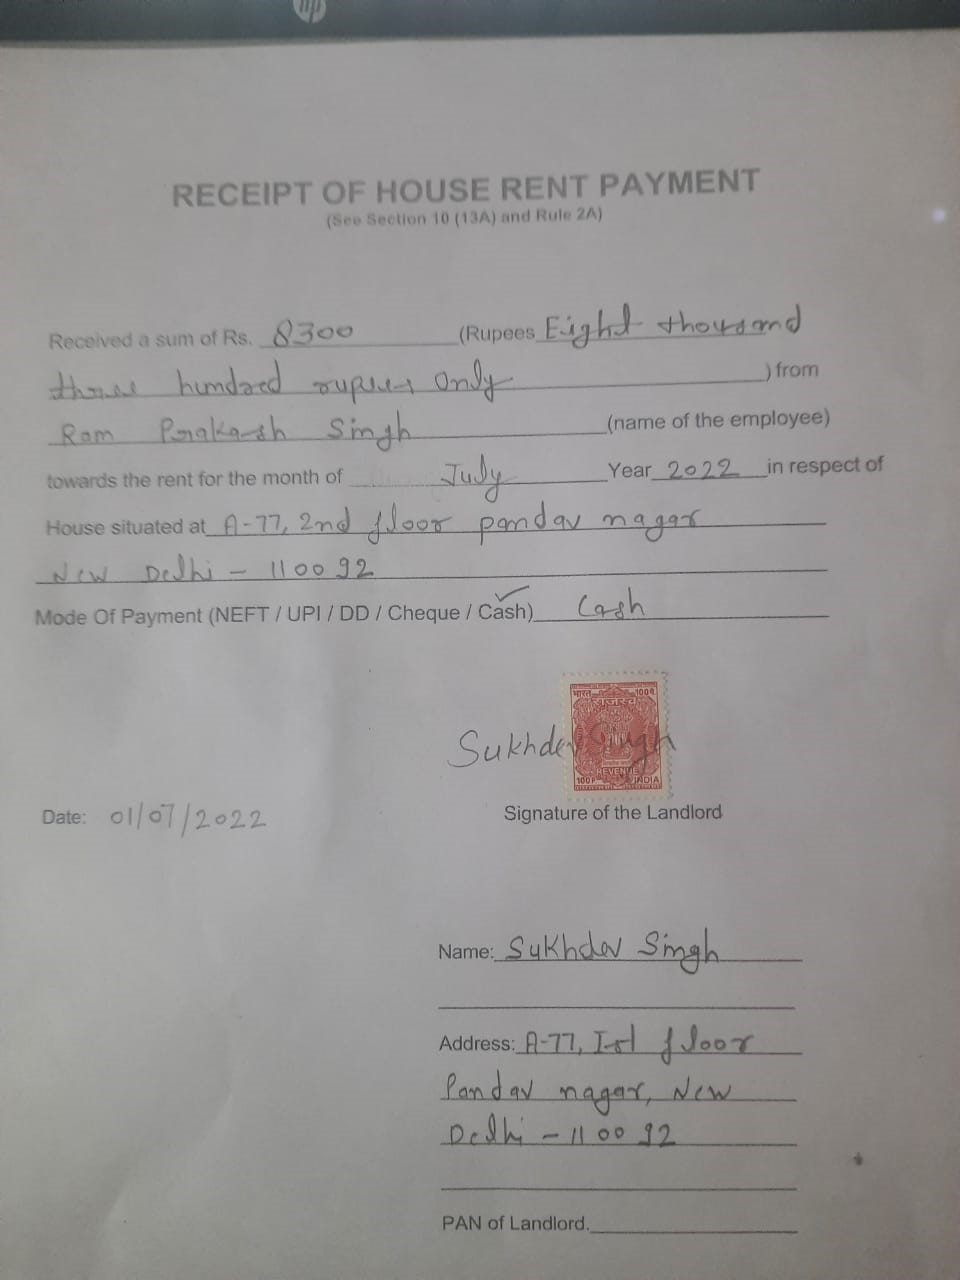 hp
RECEIPT OF HOUSE RENT PAYMENT
(See Section 10 (13A) and Rule 2A)
Received a sum of Rs. 8300 (Rupees Eight thousand
three hundred rupees only ) from
Ram Prakash Singh (name of the employee)
towards the rent for the month of July Year 2022 in respect of
House situated at A-77, 2nd floor pandav nagar
New Delhi - 110092
Mode Of Payment (NEFT / UPI / DD / Cheque / Cash) Cash
भारत 100प.
राजस्व
Sukhdev Singh
REVENUE
100P INDIA
Date: 01/07/2022
Signature of the Landlord
Name: Sukhdev Singh
Address: A-77, Ist floor
Pandav nagar, New
Delhi - 110092
PAN of Landlord.